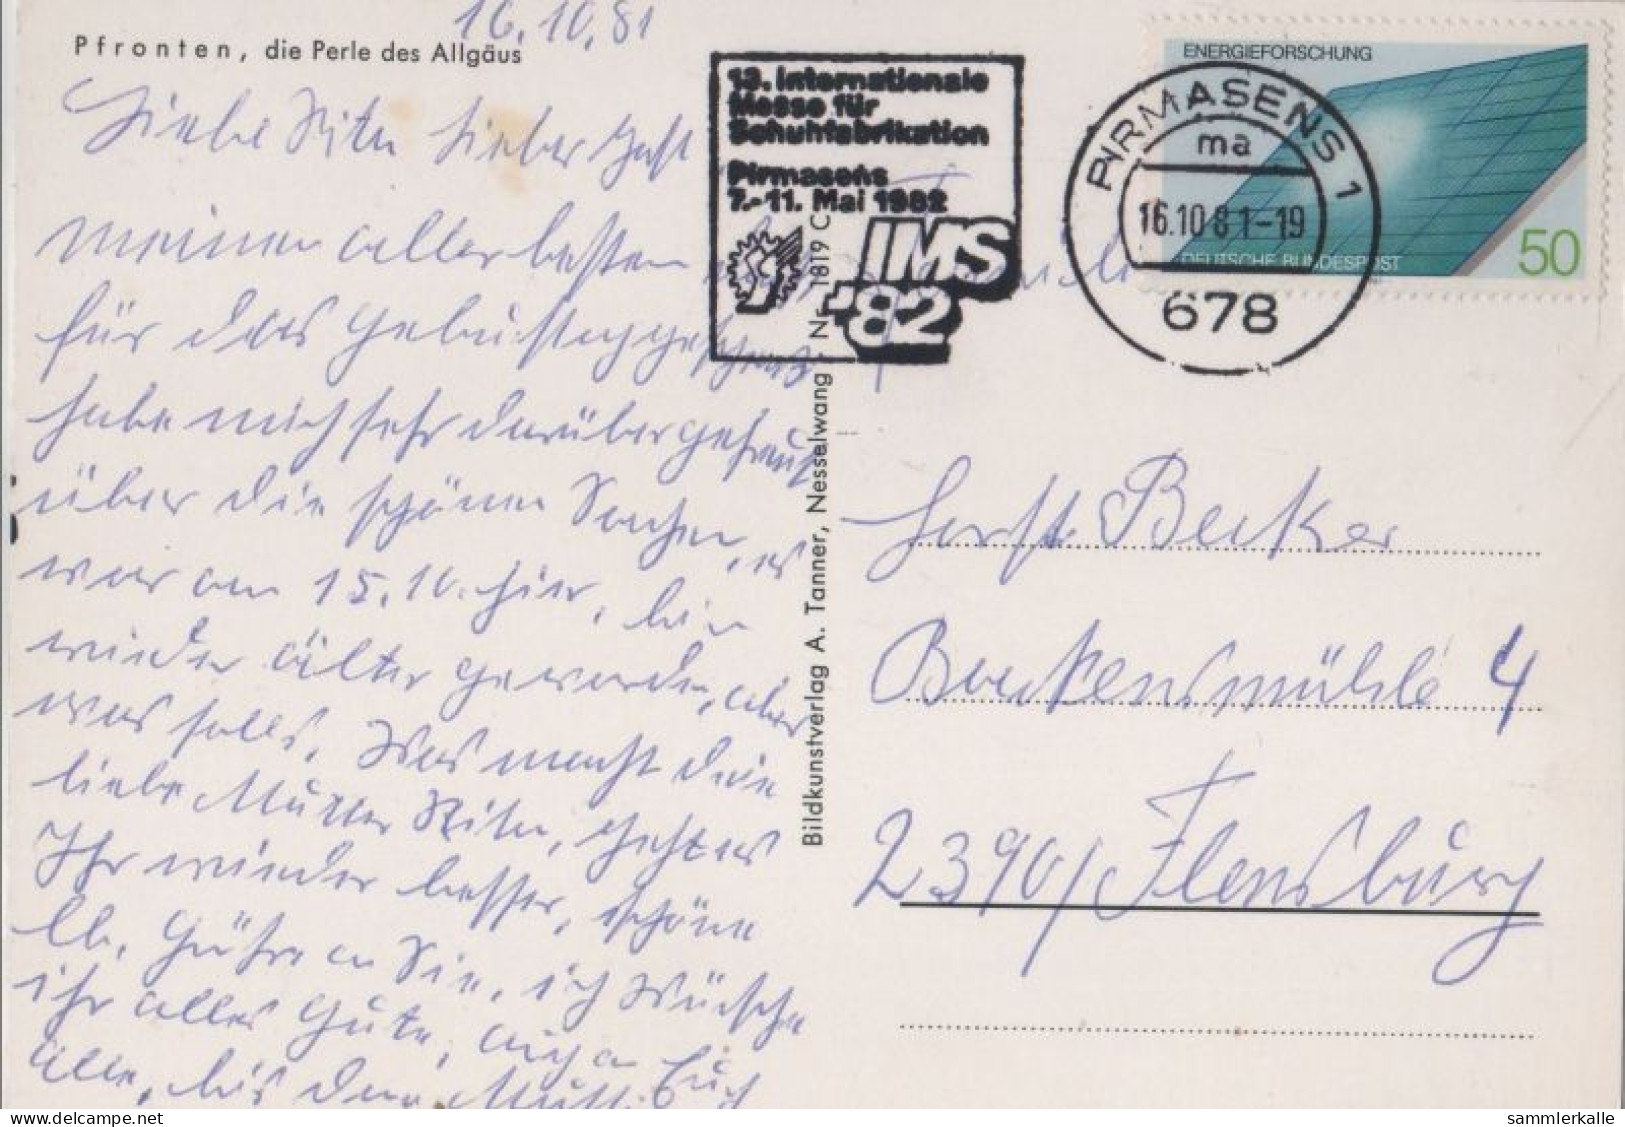 16.10.81
Pfronten, die Perle des Allgäus
Liebe Rita Lieber Horst
meinen allerbesten
für das Geburtstaggeschenk
habe mich sehr darüber gefreut
über die schönen Sachen, es
war am 15.10. hier, bin
wieder älter geworden, aber
was solls. Was macht deine
liebe Mutter Rita, geht es
Ihr wieder besser, schöne
lb. Grüße an Sie, ich wünsche
ihr alles Gute, auch an Euch
alle, bis dann Mutti
13. Internationale
Messe für
Schuhfabrikation
Pirmasens
7.-11. Mai 1982
IMS
'82
PIRMASENS 1
ma
16.10.81-19
678
ENERGIEFORSCHUNG
DEUTSCHE BUNDESPOST
50
Bildkunstverlag A. Tanner, Nesselwang Nr. 1819 C
Horst Becker
Bontensmühle 4
2390/Flensburg
sammlerkalle
delcampe.net